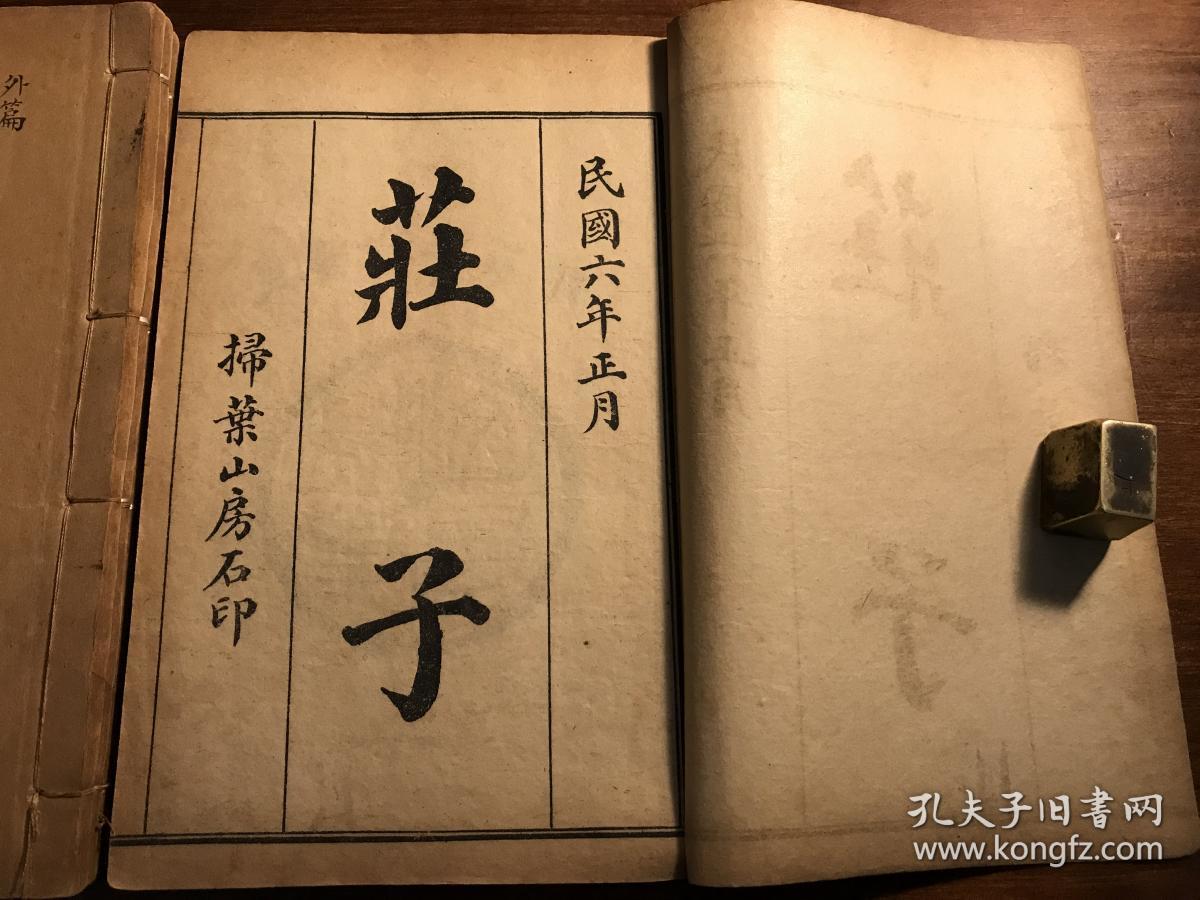 民國六年正月
莊子
掃葉山房石印
外篇
孔夫子旧书网
www.kongfz.com